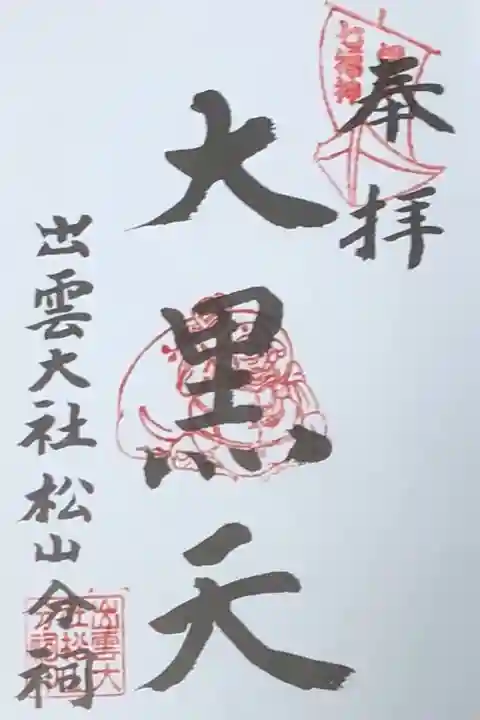 奉拝
大黒天
出雲大社松山分祠
七福神
出雲大
社松山
分祠